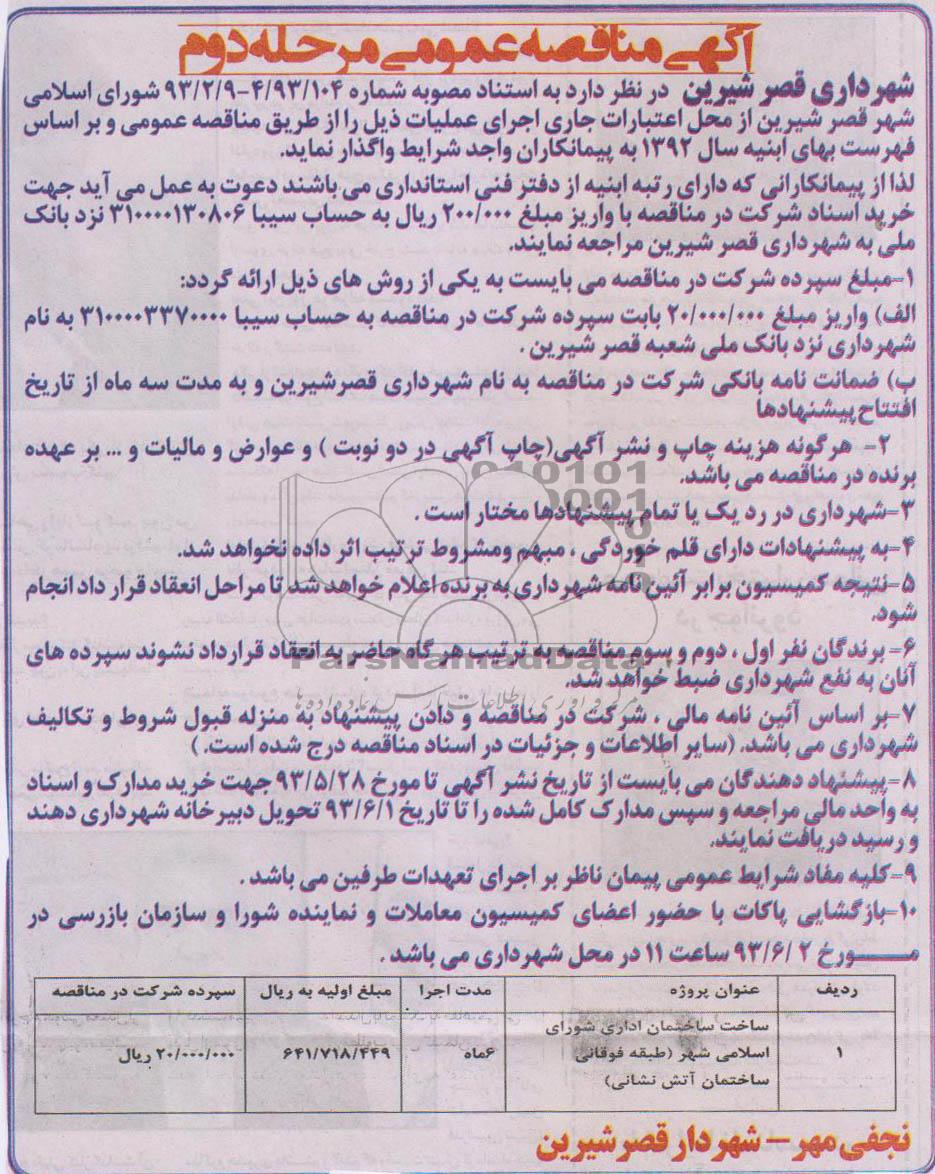 آگهی مناقصه عمومی مرحله دوم
شهرداری قصر شیرین در نظر دارد به استناد مصوبه شماره ۴/۹۳/۱۰۴-۹۳/۲/۹ شورای اسلامی
شهر قصر شیرین از محل اعتبارات جاری اجرای عملیات ذیل را از طریق مناقصه عمومی و بر اساس
فهرست بهای ابنیه سال ۱۳۹۲ به پیمانکاران واجد شرایط واگذار نماید.
لذا از پیمانکارانی که دارای رتبه ابنیه از دفتر فنی استانداری می باشند دعوت به عمل می آید جهت
خرید اسناد شرکت در مناقصه با واریز مبلغ ۲۰۰/۰۰۰ ریال به حساب سیبا ۳۱۰۰۰۰۱۳۰۸۰۶ نزد بانک
ملی به شهرداری قصر شیرین مراجعه نمایند.
۱-مبلغ سپرده شرکت در مناقصه می بایست به یکی از روش های ذیل ارائه گردد:
الف) واریز مبلغ ۲۰/۰۰۰/۰۰۰ بابت سپرده شرکت در مناقصه به حساب سیبا ۳۱۰۰۰۰۳۳۷۰۰۰۰ به نام
شهرداری نزد بانک ملی شعبه قصر شیرین .
ب) ضمانت نامه بانکی شرکت در مناقصه به نام شهرداری قصرشیرین و به مدت سه ماه از تاریخ
افتتاح پیشنهادها
۲- هرگونه هزینه چاپ و نشر آگهی(چاپ آگهی در دو نوبت ) و عوارض و مالیات و ... بر عهده
برنده در مناقصه می باشد.
۳-شهرداری در رد یک یا تمام پیشنهادها مختار است .
۴-به پیشنهادات دارای قلم خوردگی ، مبهم ومشروط ترتیب اثر داده نخواهد شد.
۵-نتیجه کمیسیون برابر آئین نامه شهرداری به برنده اعلام خواهد شد تا مراحل انعقاد قرار داد انجام
شود.
۶- برندگان نفر اول ، دوم و سوم مناقصه به ترتیب هر گاه حاضر به انعقاد قرارداد نشوند سپرده های
آنان به نفع شهرداری ضبط خواهد شد.
ParsNamadData
مرکز فرآوری اطلاعات پارس نماد داده ها
۷-بر اساس آئین نامه مالی ، شرکت در مناقصه و دادن پیشنهاد به منزله قبول شروط و تکالیف
شهرداری می باشد. (سایر اطلاعات و جزئیات در اسناد مناقصه درج شده است. )
۸-پیشنهاد دهندگان می بایست از تاریخ نشر آگهی تا مورخ ۹۳/۵/۲۸ جهت خرید مدارک و اسناد
به واحد مالی مراجعه و سپس مدارک کامل شده را تا تاریخ ۹۳/۶/۱ تحویل دبیرخانه شهرداری دهند
و رسید دریافت نمایند.
۹-کلیه مفاد شرایط عمومی پیمان ناظر بر اجرای تعهدات طرفین می باشد .
۱۰-بازگشایی پاکات با حضور اعضای کمیسیون معاملات و نماینده شورا و سازمان بازرسی در
مـــــورخ ۹۳/۶/۲ ساعت ۱۱ در محل شهرداری می باشد .
ردیف عنوان پروژه مدت اجرا مبلغ اولیه به ریال سپرده شرکت در مناقصه
ساخت ساختمان اداری شورای
۱ اسلامی شهر (طبقه فوقانی ۶ماه ۶۴۱/۷۱۸/۴۴۹ ۲۰/۰۰۰/۰۰۰ ریال
ساختمان آتش نشانی)
نجفی مهر – شهردار قصر شیرین